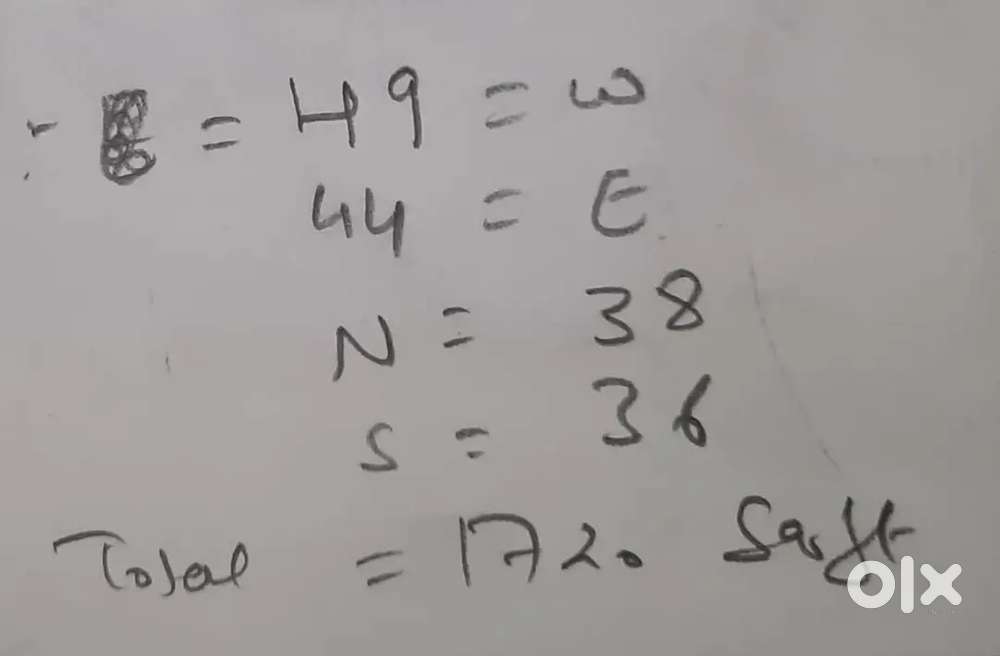 = 49 = W
44 = E
N = 38
S = 36
Total = 1720 Sq.ft
olx